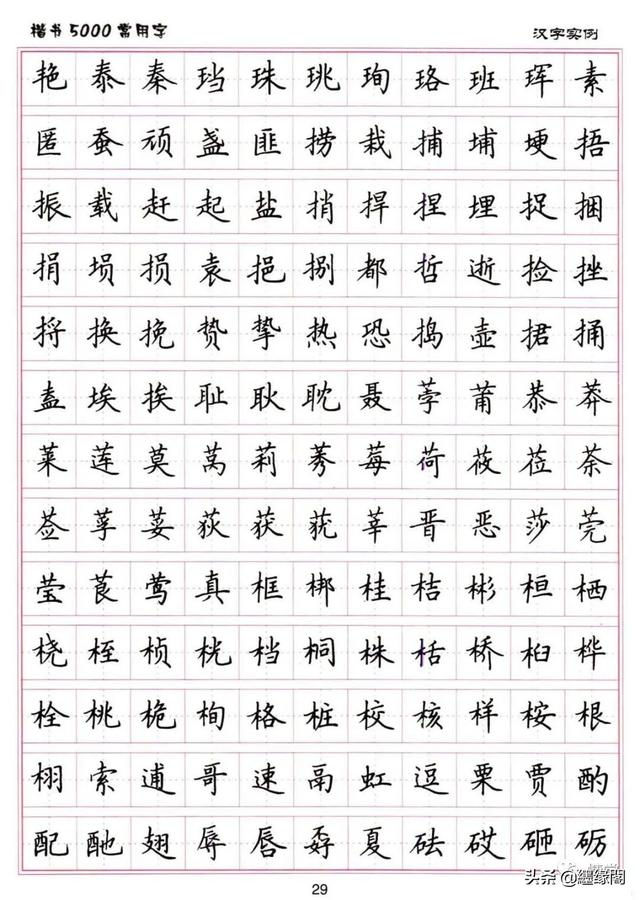 楷书5000常用字 汉字实例
艳泰秦珰珠珧珣珞班珲素
匿蚕顽盏匪捞栽捕埔埂捂
振载赶起盐捎捍捏埋捉捆
捐埙损袁挹捌都哲逝捡挫
捋换挽贽挚热恐捣壶捃捅
盍埃挨耻耿耽聂荸莆恭莽
莱莲莫莴莉莠莓荷莜莅荼
莶莩荽荻获莸莘晋恶莎莞
莹莨莺真框梆桂桔彬桓栖
桡桎桢桄档桐株栝桥桕桦
栓桃桅栒格桩校核样桉根
栩索逋哥速鬲虹逗栗贾酌
配酏翅辱唇孬夏砝砹砸砺
29
头条 @纏缘閣